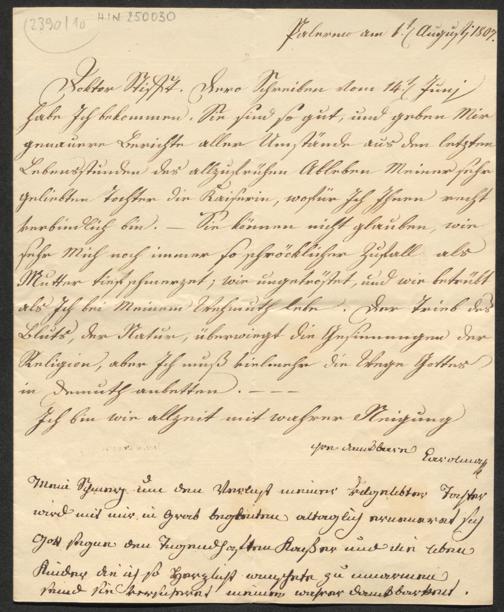 2390/10 HIN 250030
Palermo am 1t August 1807.
Doktor Stifft. Dero Schreiben vom 14t Junj
habe Ich bekommen. Sie sind so gut, und geben Mir
genauere Berichte aller Umstände aus den letzten
Lebensstunden des allzufrühen Ableben Meiner sehr
geliebten Tochter die Kaiserin, wofür Ich Ihnen recht
verbindlich bin. — Sie können nicht glauben, wie
sehr Mich noch immer so schröcklicher Zufall als
Mutter tief schmerzet, wie ungetröstet, und wie betrübt
als Ich bei Meinem Wehmuth lebe. Der Trieb des
Bluts, der Natur, überwiegt die Gesinnungen der
Religion, aber Ich muß vielmehr die Wege Gottes
in Demuth anbetten. — — —
Ich bin wie allzeit mit wahrer Neigung
ire danckbare Carolina
Mein Schmerz um den Verlust meiner Tochter
wird mit mir in Grab alltaglich erneueret sich
Gott segne den Tugendhaften Kayser und die lieben
Kinder die ich so Herzlich wünschte zu umarmen
seind sie versicheret meiner wahrer danckbarkeit.